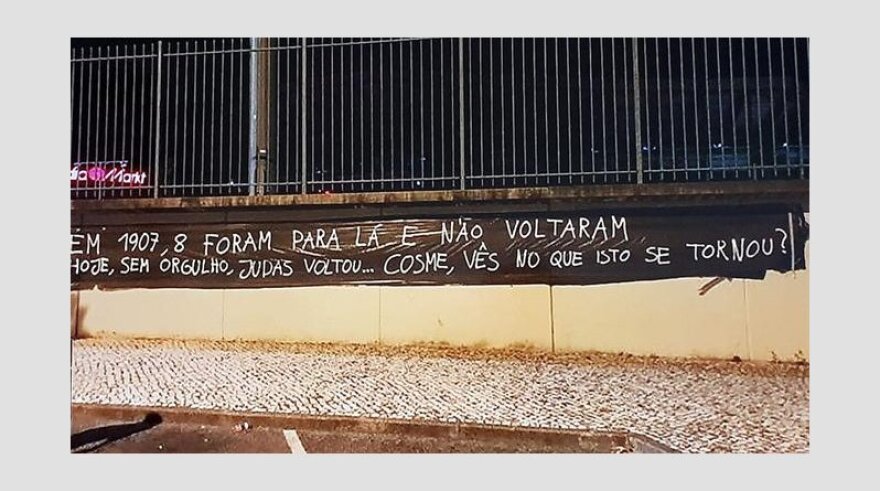 dia Markt
EM 1907, 8 FORAM PARA LÁ E NÃO VOLTARAM
HOJE, SEM ORGULHO, JUDAS VOLTOU... COSME, VÊS NO QUE ISTO SE TORNOU?